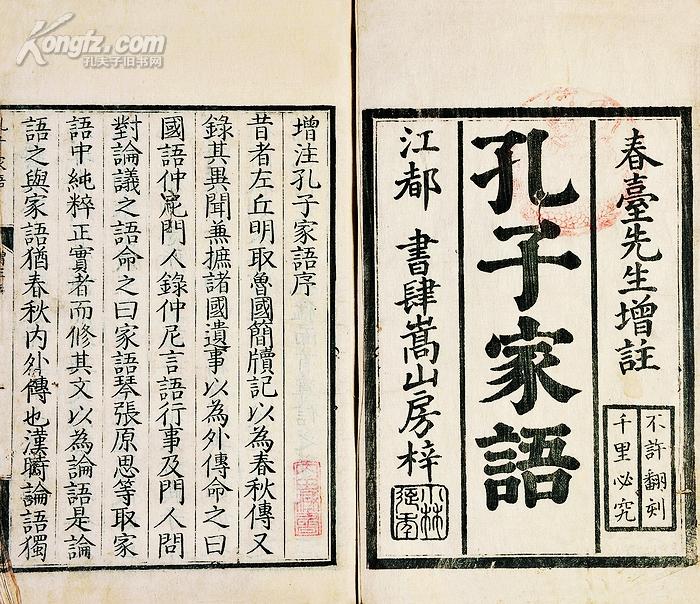 春臺先生增註
不許翻刻
千里必究
孔子家語
江都 書肆嵩山房梓
小林
延年
增注孔子家語序
昔者左丘明取魯國簡牘記以為春秋傳又
錄其異聞兼摭諸國遺事以為外傳命之曰
國語仲尼門人錄仲尼言語行事及門人問
對論議之語命之曰家語琴張原思等取家
語中純粹正實者而修其文以為論語是論
語之與家語猶春秋內外傳也漢時論語獨
Kongfz.com
孔夫子旧书网